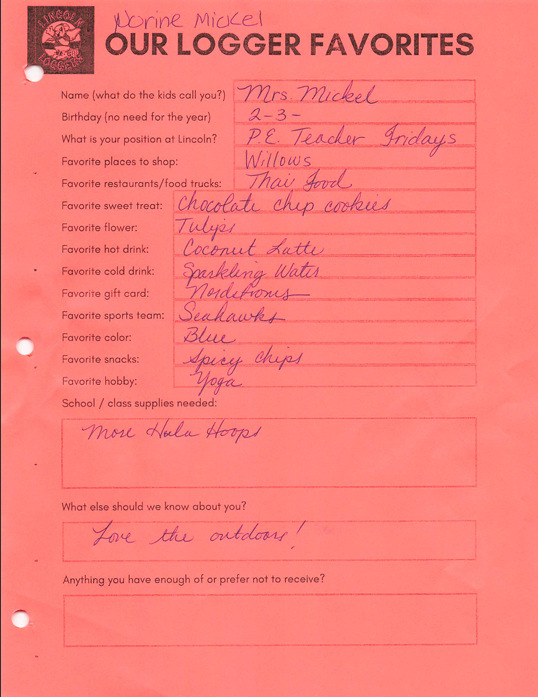 Norine Mickel
LINCOLN
LOGGERS
OUR LOGGER FAVORITES
Name (what do the kids call you?) Mrs. Mickel
Birthday (no need for the year) 2-3-
What is your position at Lincoln? P.E. Teacher Fridays
Favorite places to shop: Willows
Favorite restaurants/food trucks: Thai Food
Favorite sweet treat: Chocolate chip cookies
Favorite flower: Tulips
Favorite hot drink: Coconut Latte
Favorite cold drink: Sparkling Water
Favorite gift card: Nordstroms
Favorite sports team: Seahawks
Favorite color: Blue
Favorite snacks: Spicy chips
Favorite hobby: Yoga
School / class supplies needed:
More Hula Hoops
What else should we know about you?
Love the outdoors!
Anything you have enough of or prefer not to receive?